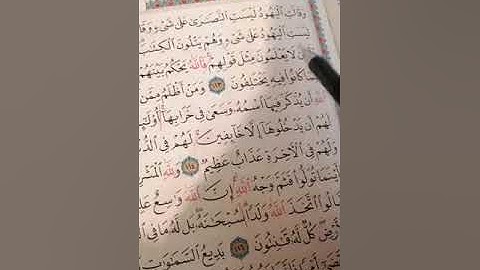 وَقَالَتِ ٱلْيَهُودُ لَيْسَتِ ٱلنَّصَٰرَىٰ عَلَىٰ شَىْءٍ وَقَا
لَيْسَتِ ٱلْيَهُودُ عَلَىٰ شَىْءٍ وَهُمْ يَتْلُونَ ٱلْكِتَٰبَ
لَا يَعْلَمُونَ مِثْلَ قَوْلِهِمْ فَٱللَّهُ يَحْكُمُ بَيْنَهُمْ
مَا كَانُوا۟ فِيهِ يَخْتَلِفُونَ ١١٣ وَمَنْ أَظْلَمُ مِمَّن
ٱللَّهِ أَن يُذْكَرَ فِيهَا ٱسْمُهُۥ وَسَعَىٰ فِى خَرَابِهَآ أُو۟لَٰٓئِ
لَهُمْ أَن يَدْخُلُوهَآ إِلَّا خَآئِفِينَ لَهُمْ فِى ٱلدُّ
وَلَهُمْ فِى ٱلْءَاخِرَةِ عَذَابٌ عَظِيمٌ ١١٤ وَلِلَّهِ ٱلْمَشْرِ
يْنَمَا تُوَلُّوا۟ فَثَمَّ وَجْهُ ٱللَّهِ إِنَّ ٱللَّهَ وَٰسِعٌ عَلِ
الُوا۟ ٱتَّخَذَ ٱللَّهُ وَلَدًا سُبْحَٰنَهُۥ بَل لَّهُۥ مَا فِى
رْضِ كُلٌّ لَّهُۥ قَٰنِتُونَ ١١٦ بَدِيعُ ٱلسَّمَٰوَٰتِ